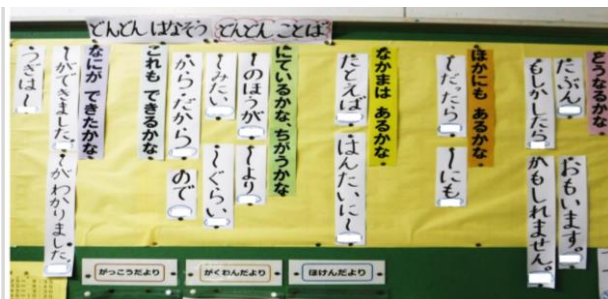 どんどん はなそう どんどん ことば
どうなるかな
たぶん
おもいます。
もしかしたら
かもしれません。
ほかにも あるかな
〜だったら
〜にも
なかまは あるかな
たとえば
はんたいに〜
にているかな、ちがうかな
〜のほうが
〜より
〜みたい
〜ぐらい
から・だから
ので
これも できるかな
なにが できたかな
〜ができました。
〜がわかりました。
つぎは〜
がっこうだより
がくねんだより
ほけんだより